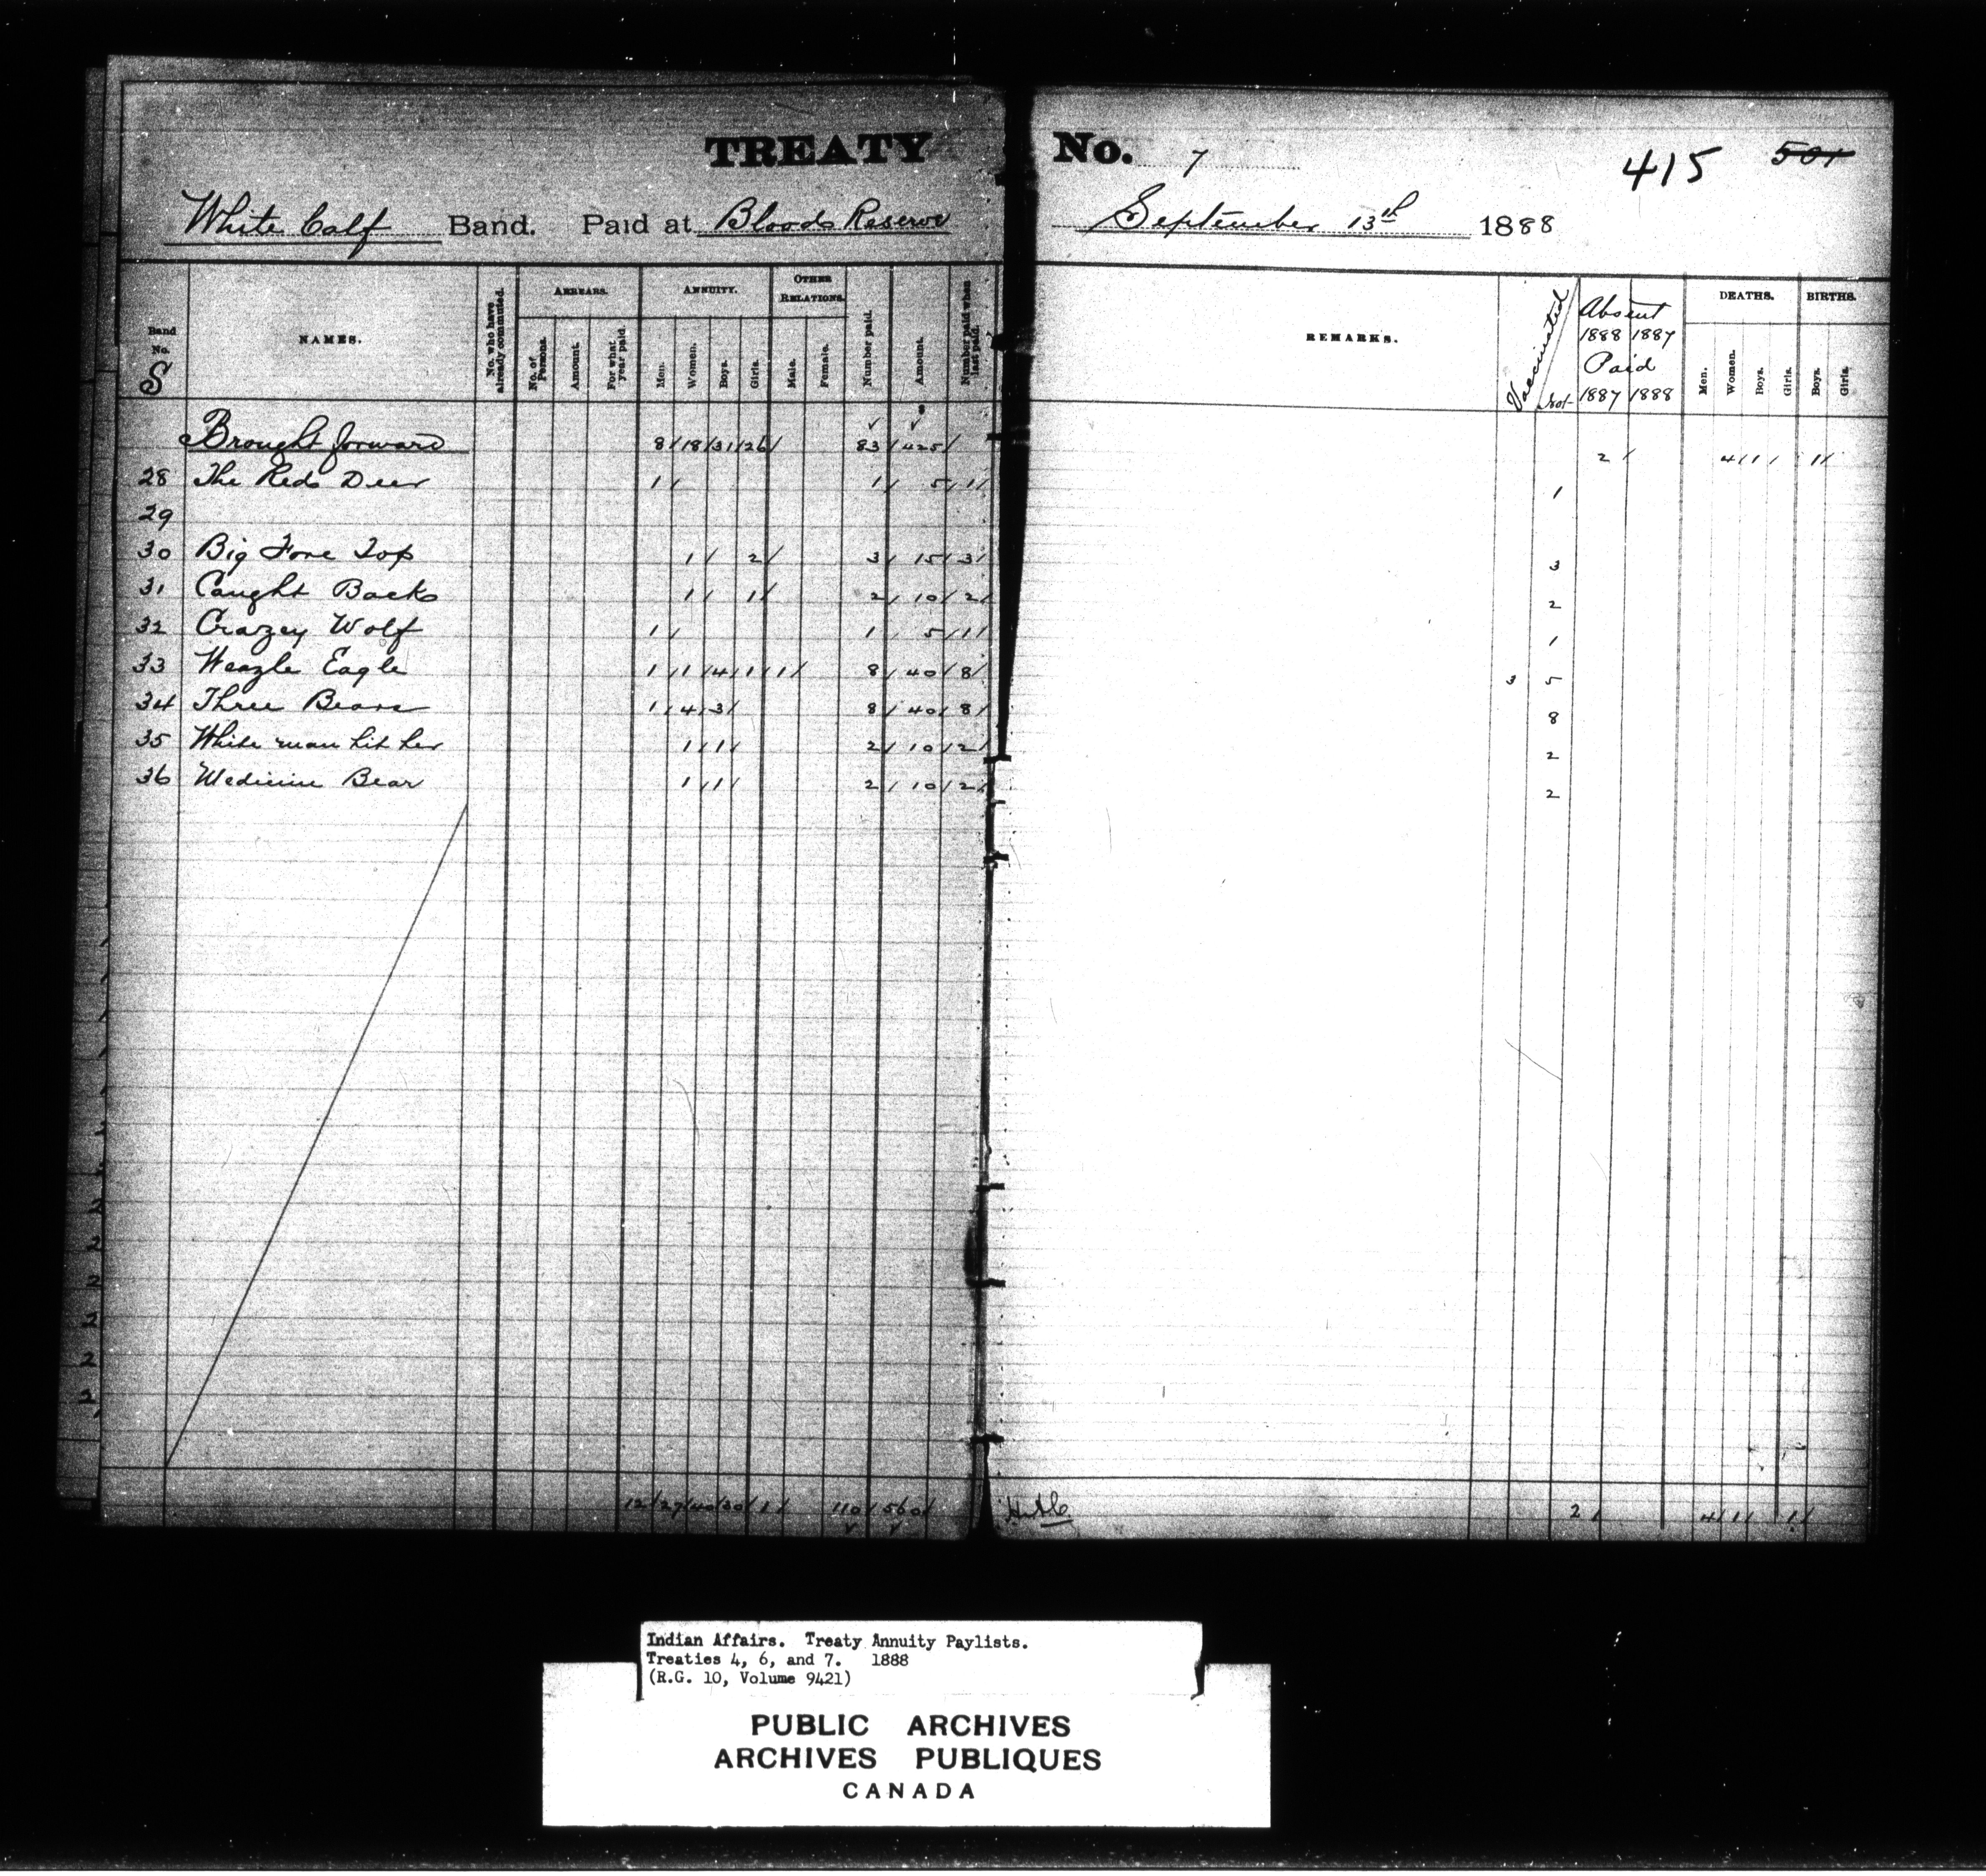 TREATY No. 7 415 501
White Calf Band. Paid at Bloods Reserve September 13th 1888
Band No. S NAMES. No. who have already commuted. ARREARS. No. of Persons. Amount. For what year paid. ANNUITY. Men. Women. Boys. Girls. OTHER RELATIONS. Male. Female. Number paid. Amount. Number paid when last paid. REMARKS. Vaccinated / Not Absent 1888 1887 Paid 1887 1888 DEATHS. Men. Women. Boys. Girls. BIRTHS. Boys. Girls.
Brought forward 8/ 18/ 31/ 26/ 83/ 425/ 2/ 4/ 1/ / 1/
28 The Red Deer 1/ 1/ 5/ 1/ 1
29
30 Big Fore Top 1/ 2/ 3/ 15/ 3/ 3
31 Caught Backs 1/ 1/ 2/ 10/ 2/ 2
32 Crazey Wolf 1/ 1/ 5/ 1/ 1
33 Weazle Eagle 1/ 1/ 4/ 1/ 1/ 8/ 40/ 8/ 3 5
34 Three Bears 1/ 4/ 3/ 8/ 40/ 8/ 8
35 White man hit her 1/ 1/ 2/ 10/ 2/ 2
36 Medicine Bear 1/ 1/ 2/ 10/ 2/ 2
12/ 27/ 40/ 30/ 1/ 110/ 560/ 2/ 4/ 1/ / 1/
Indian Affairs. Treaty Annuity Paylists.
Treaties 4, 6, and 7. 1888
(R.G. 10, Volume 9421)
PUBLIC ARCHIVES
ARCHIVES PUBLIQUES
CANADA